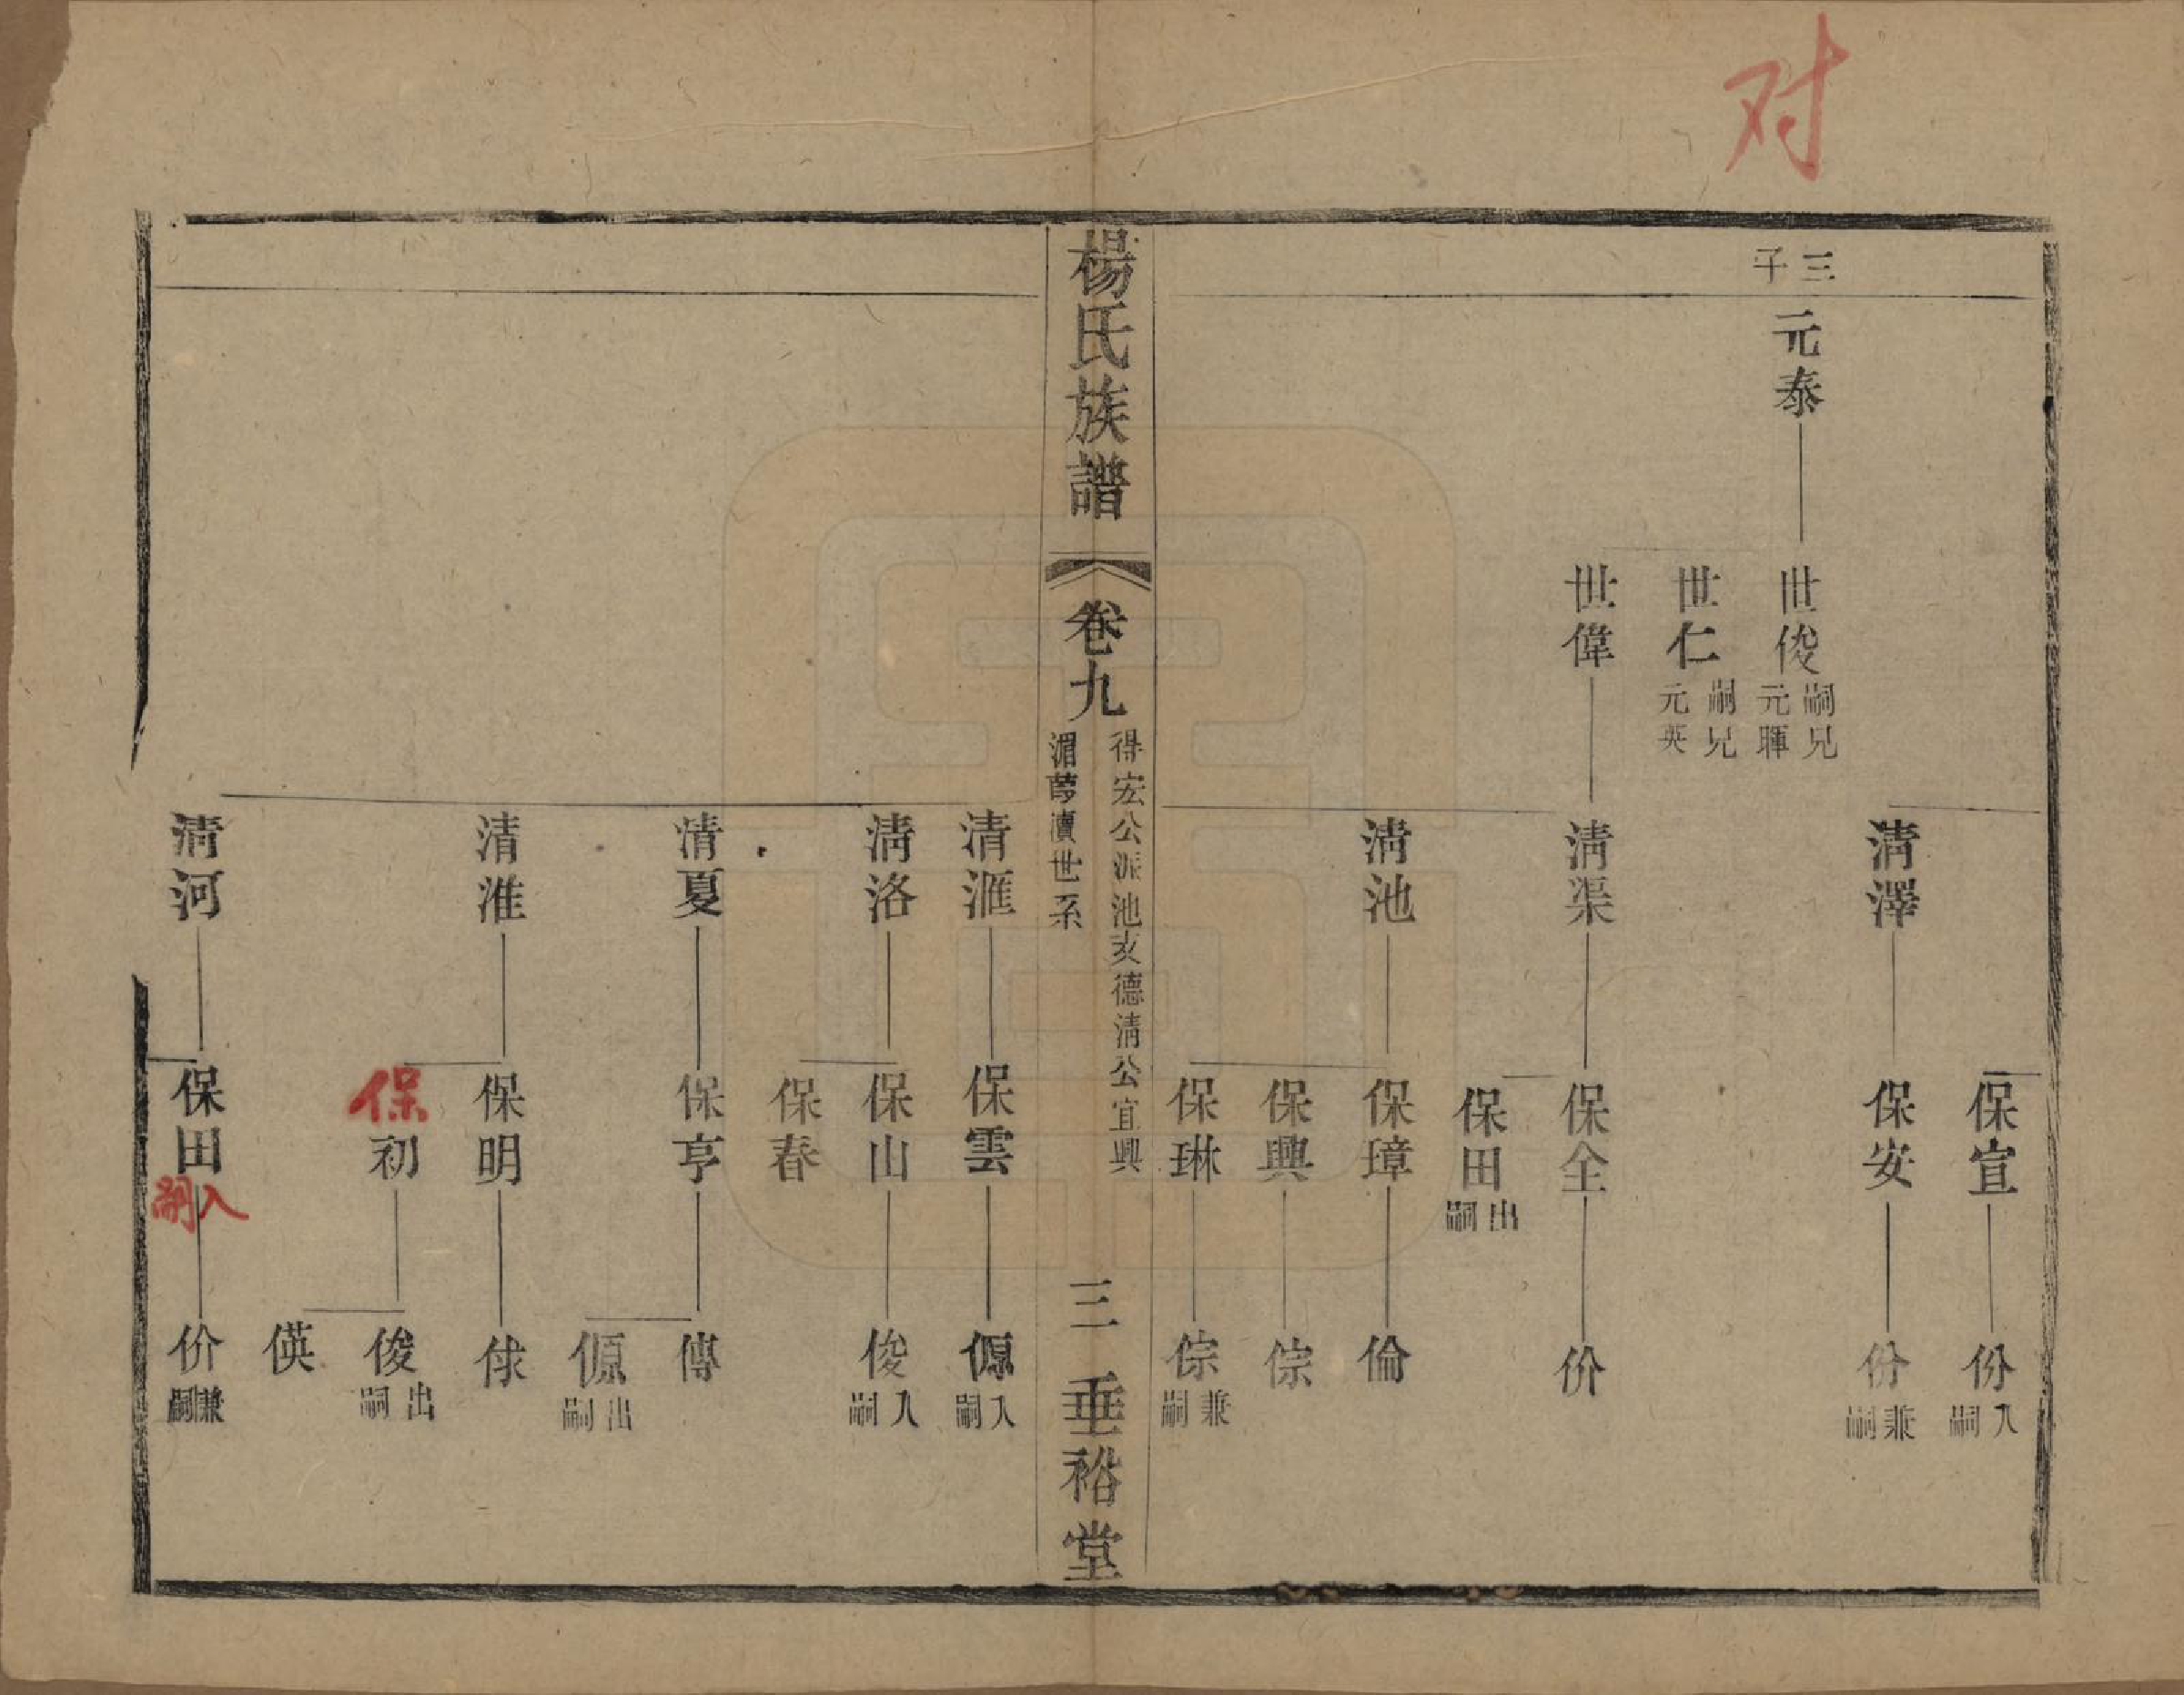 对
三子
元泰
世俊 嗣兄元暉
世仁 嗣兄元英
世偉
清澤
清渠
清池
保宣
保安
保全
保田 出嗣
保璋
保興
保琳
份 入嗣
份 兼嗣
价
倫
倧
倧 兼嗣
楊氏族譜
卷九
得宏公派池亥德清公宜興
湄蕁瀆世系
三
垂裕堂
清滙
清洛
清夏
清淮
清河
保雲
保山
保春
保亨
保明
保初
保田 入嗣
傆 入嗣
俊 入嗣
傳
傆 出嗣
俅
俊 出嗣
偀
价 兼嗣